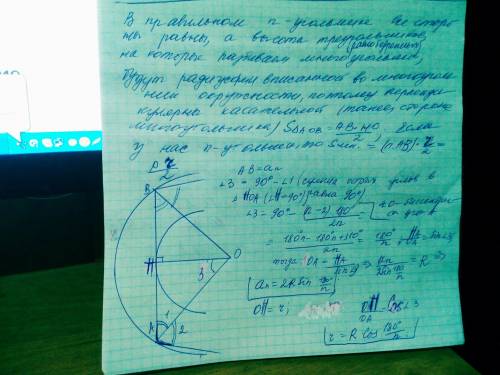 В правильном n-угольнике все сторо
ны равны, а высота треугольников,
(равнобедренных)
на которые разбиваем многоугольник,
будут радиусами вписанной во многоуголь
ник окружности, потому перпенди
кулярна касательной (также, стороне
многоугольника) S△AOB = AB·HO / 2. Если
у нас n-угольник, то Sмн. = (n·AB)·r / 2 =
P·r / 2
AB = an
∠3 = 90° − ∠1 (сумма острых углов в
△ HOA (∠H=90°) равна 90°)
∠3 = 90° − (n−2)·180 / 2n AO-биссектриса угла
= 180°n − 180°n + 360° / 2n = 180° / n, HA / OA = sin∠3
тогда OA = HA / sin∠3 ⇒ an / 2sin 180/n = R ⇒
an = 2R sin 180° / n
OH = r; OH / OA = Cos∠3
r = R Cos 180° / n
B
H
O
A
1
2
3